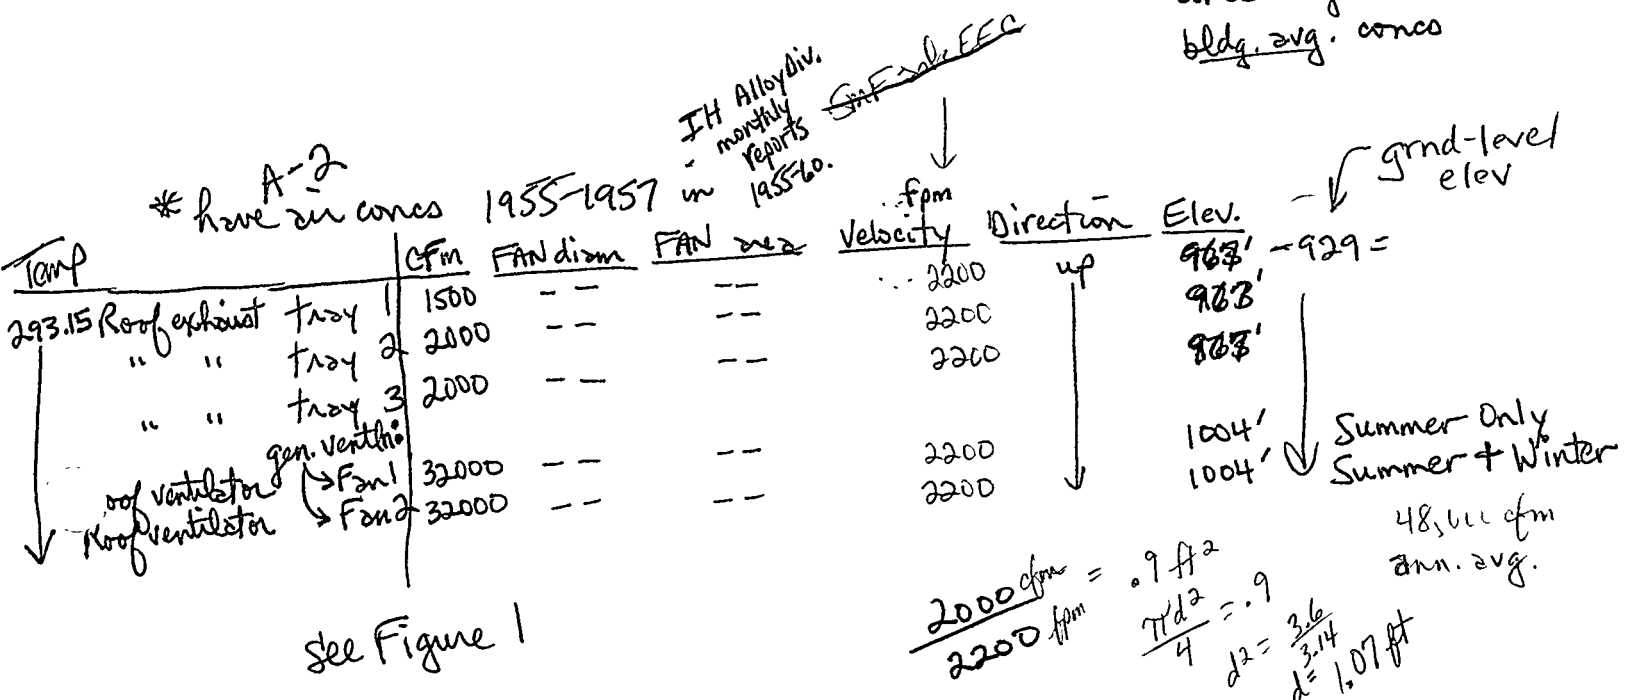 bldg. avg. concs
IH Alloy Div.
monthly
reports
1955-60.
grnd-level
elev
A-2
* have air concs 1955-1957 in
fpm
Temp CFm FAN diam FAN area Velocity Direction Elev.
293.15 Roof exhaust tray 1 1500 -- -- 2200 up 963' -929 =
" " tray 2 2000 -- -- 2200 963'
" " tray 3 2000 -- -- 2200 963'
gen. ventln:
oof ventilator Fan 1 32000 -- -- 2200 1004' Summer Only
Roof ventilator Fan 2 32000 -- -- 2200 1004' Summer + Winter
cfm
ann. avg.
see Figure 1
2000 cfm / 2200 fpm = .9 ft²
πd²/4 = .9
d² = 3.6/3.14
d = 1.07 ft